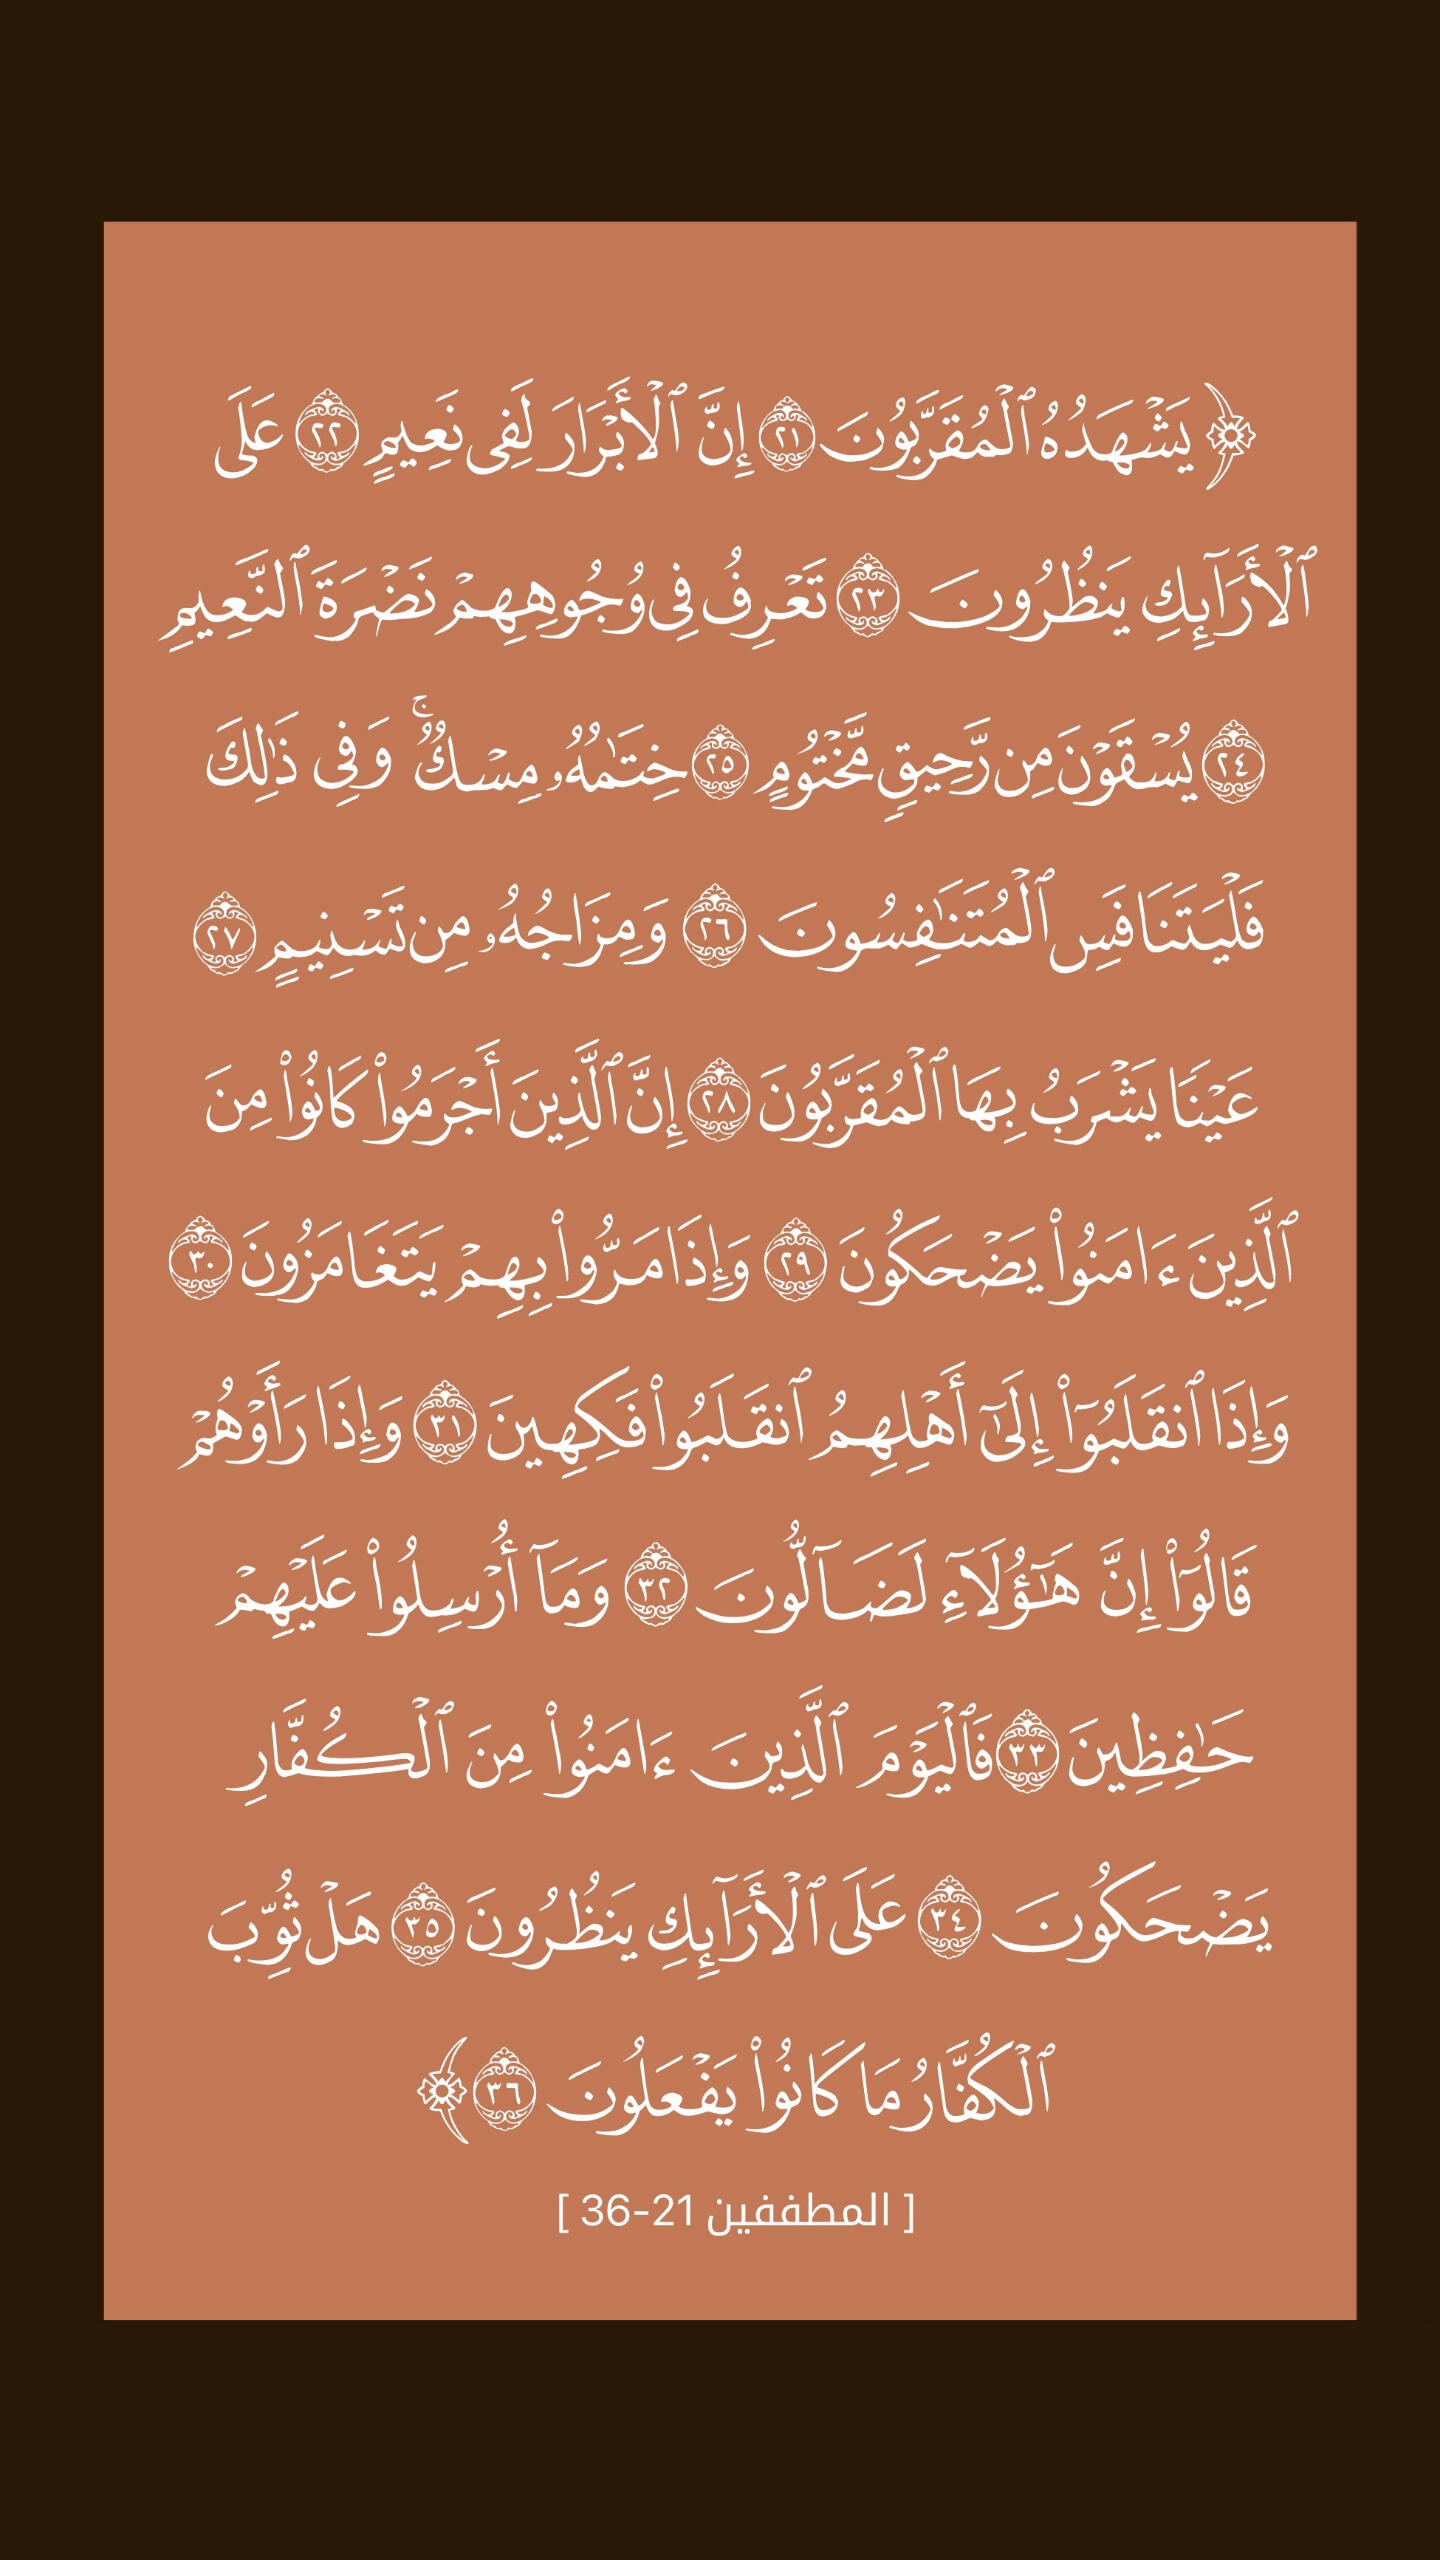 ﴿يَشۡهَدُهُ ٱلۡمُقَرَّبُونَ ٢١ إِنَّ ٱلۡأَبۡرَارَ لَفِي نَعِيمٍ ٢٢ عَلَى
ٱلۡأَرَآئِكِ يَنظُرُونَ ٢٣ تَعۡرِفُ فِي وُجُوهِهِمۡ نَضۡرَةَ ٱلنَّعِيمِ
٢٤ يُسۡقَوۡنَ مِن رَّحِيقٖ مَّخۡتُومٍ ٢٥ خِتَٰمُهُۥ مِسۡكٞۚ وَفِي ذَٰلِكَ
فَلۡيَتَنَافَسِ ٱلۡمُتَنَٰفِسُونَ ٢٦ وَمِزَاجُهُۥ مِن تَسۡنِيمٍ ٢٧
عَيۡنٗا يَشۡرَبُ بِهَا ٱلۡمُقَرَّبُونَ ٢٨ إِنَّ ٱلَّذِينَ أَجۡرَمُواْ كَانُواْ مِنَ
ٱلَّذِينَ ءَامَنُواْ يَضۡحَكُونَ ٢٩ وَإِذَا مَرُّواْ بِهِمۡ يَتَغَامَزُونَ ٣٠
وَإِذَا ٱنقَلَبُوٓاْ إِلَىٰٓ أَهۡلِهِمُ ٱنقَلَبُواْ فَكِهِينَ ٣١ وَإِذَا رَأَوۡهُمۡ
قَالُوٓاْ إِنَّ هَٰٓؤُلَآءِ لَضَآلُّونَ ٣٢ وَمَآ أُرۡسِلُواْ عَلَيۡهِمۡ
حَٰفِظِينَ ٣٣ فَٱلۡيَوۡمَ ٱلَّذِينَ ءَامَنُواْ مِنَ ٱلۡكُفَّارِ
يَضۡحَكُونَ ٣٤ عَلَى ٱلۡأَرَآئِكِ يَنظُرُونَ ٣٥ هَلۡ ثُوِّبَ
ٱلۡكُفَّارُ مَا كَانُواْ يَفۡعَلُونَ ٣٦﴾
[ المطففين 21-36 ]